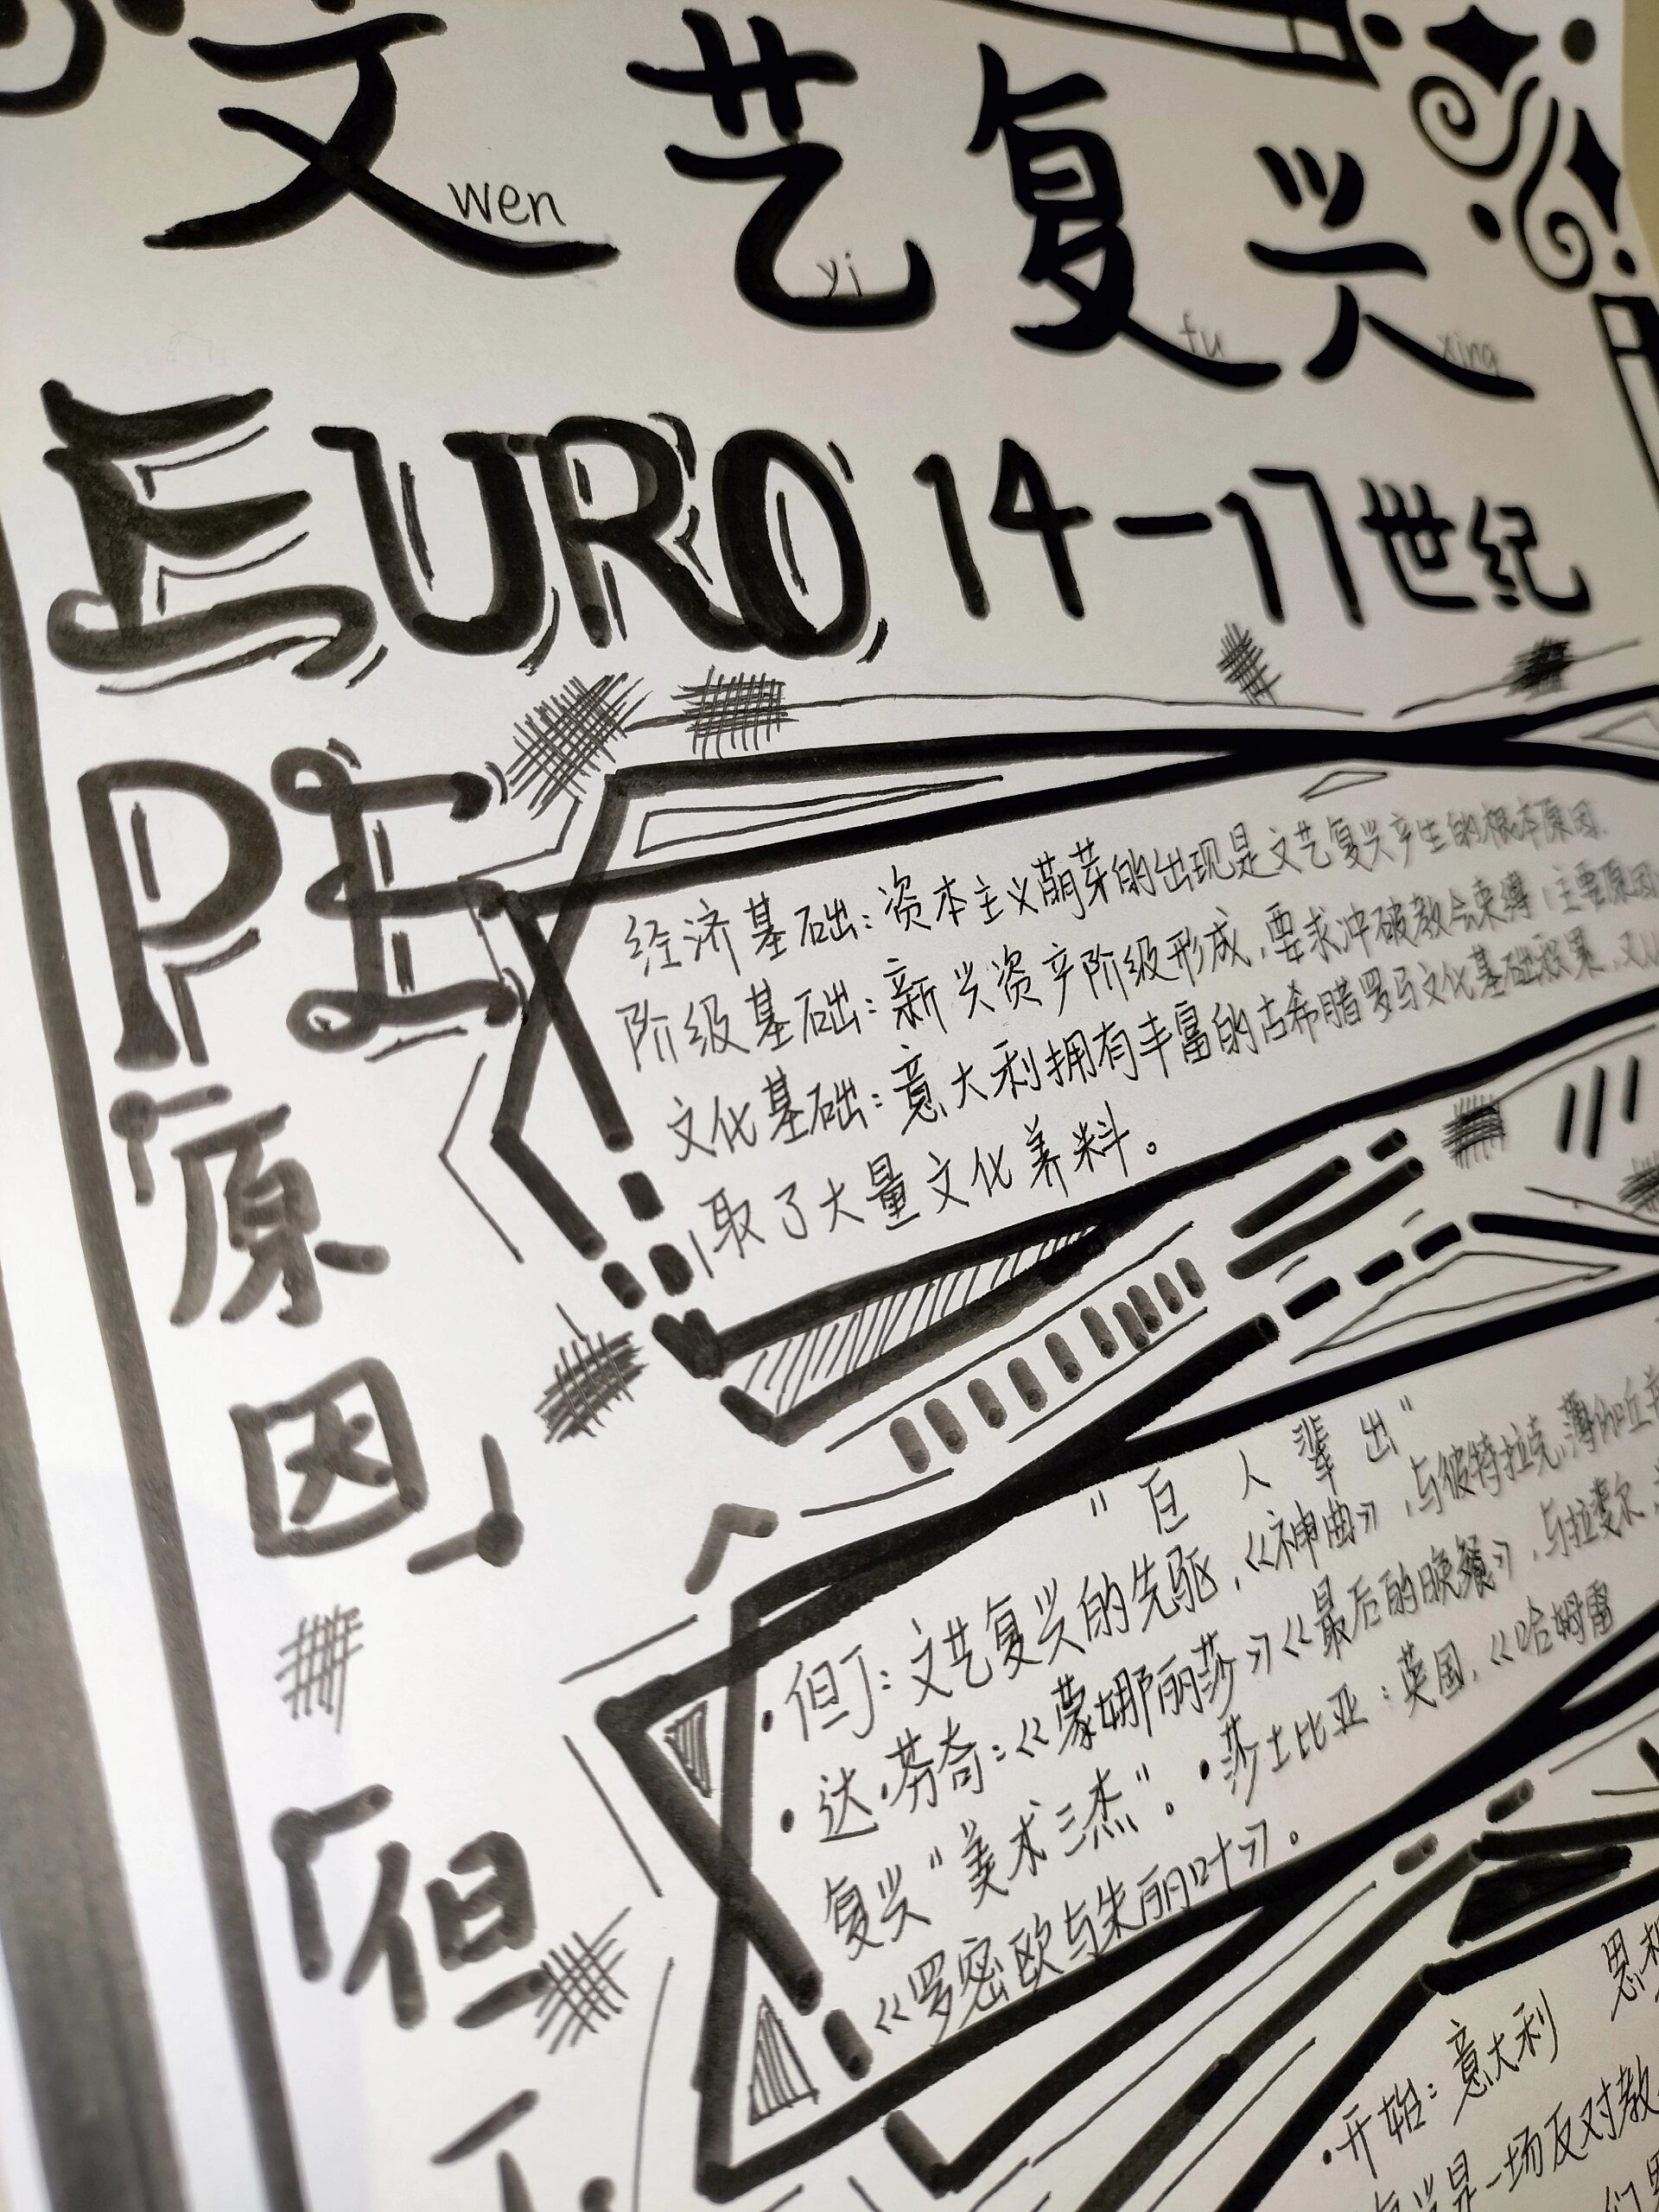 文艺复兴
wen yi fu xing
EURO 14-17世纪
PE
经济基础：资本主义萌芽的出现是文艺复兴产生的根本原因.
阶级基础：新兴资产阶级形成，要求冲破教会束缚，主要原因
文化基础：意大利拥有丰富的古希腊罗马文化基础
取了大量文化养料。
「原因」
"巨人辈出"
·但丁：文艺复兴的先驱，《神曲》，与彼特拉克，薄伽丘
·达·芬奇：《蒙娜丽莎》《最后的晚餐》，与拉斐尔，
复兴"美术三杰"。·莎士比亚：英国，《哈姆雷
《罗密欧与朱丽叶》。
「但丁
·开始：意大利 思想
兴是一场反对教
们